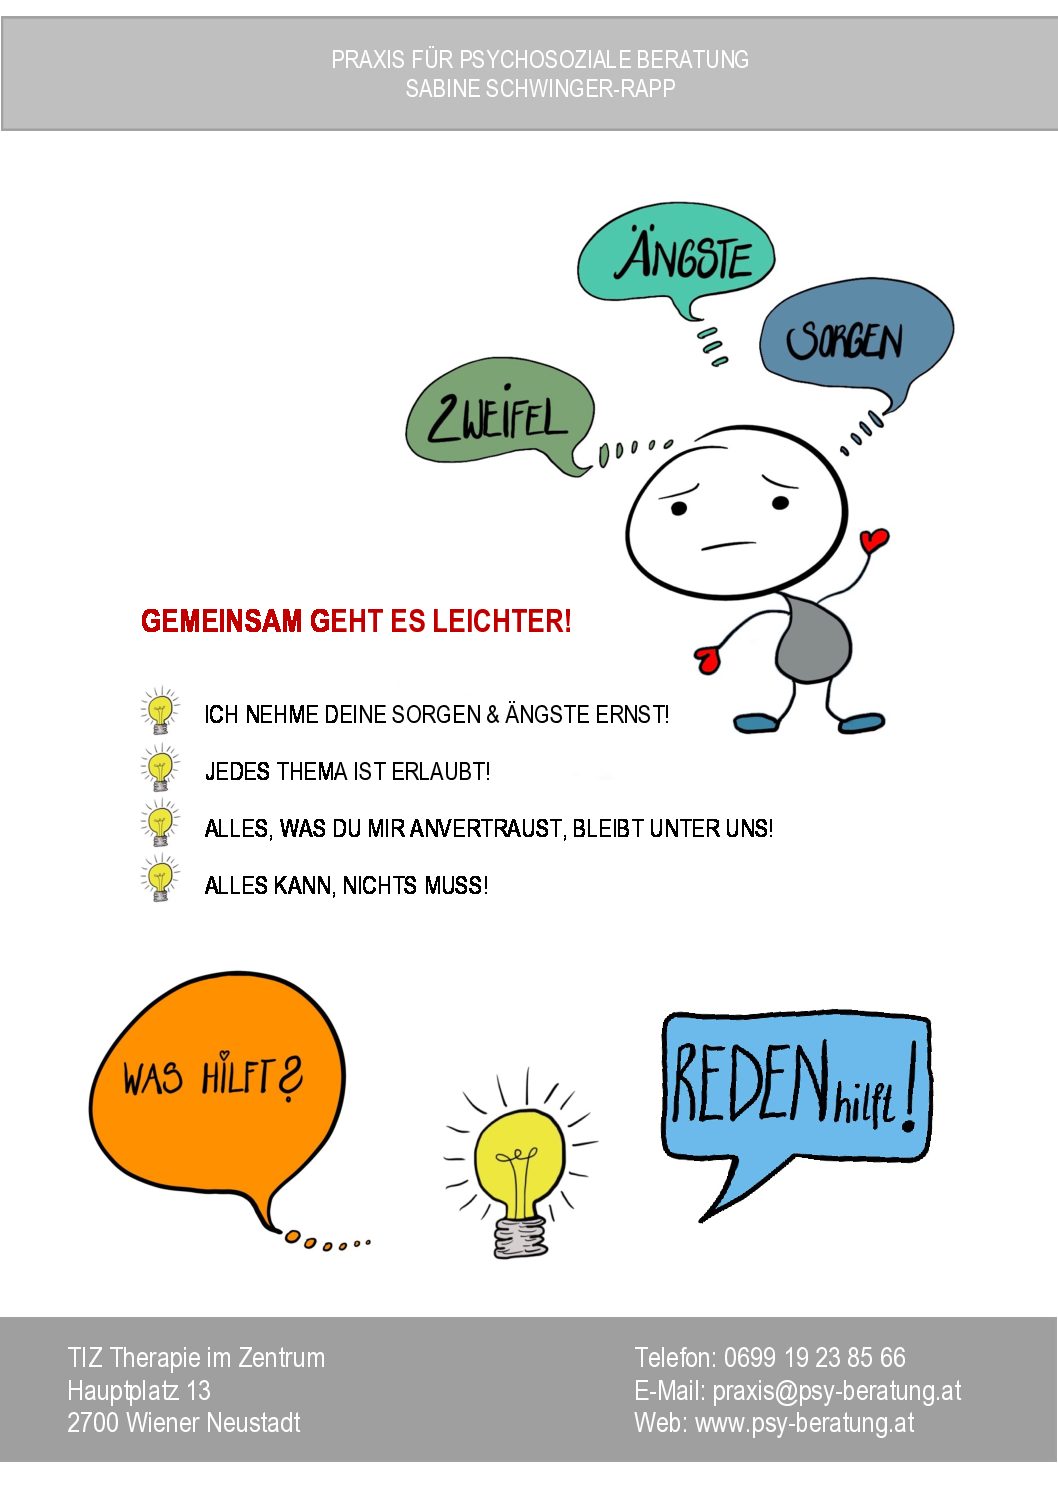 PRAXIS FÜR PSYCHOSOZIALE BERATUNG
SABINE SCHWINGER-RAPP
ÄNGSTE
SORGEN
ZWEIFEL
GEMEINSAM GEHT ES LEICHTER!
ICH NEHME DEINE SORGEN & ÄNGSTE ERNST!
JEDES THEMA IST ERLAUBT!
ALLES, WAS DU MIR ANVERTRAUST, BLEIBT UNTER UNS!
ALLES KANN, NICHTS MUSS!
WAS HILFT?
REDEN hilft!
TIZ Therapie im Zentrum
Hauptplatz 13
2700 Wiener Neustadt
Telefon: 0699 19 23 85 66
E-Mail: praxis@psy-beratung.at
Web: www.psy-beratung.at